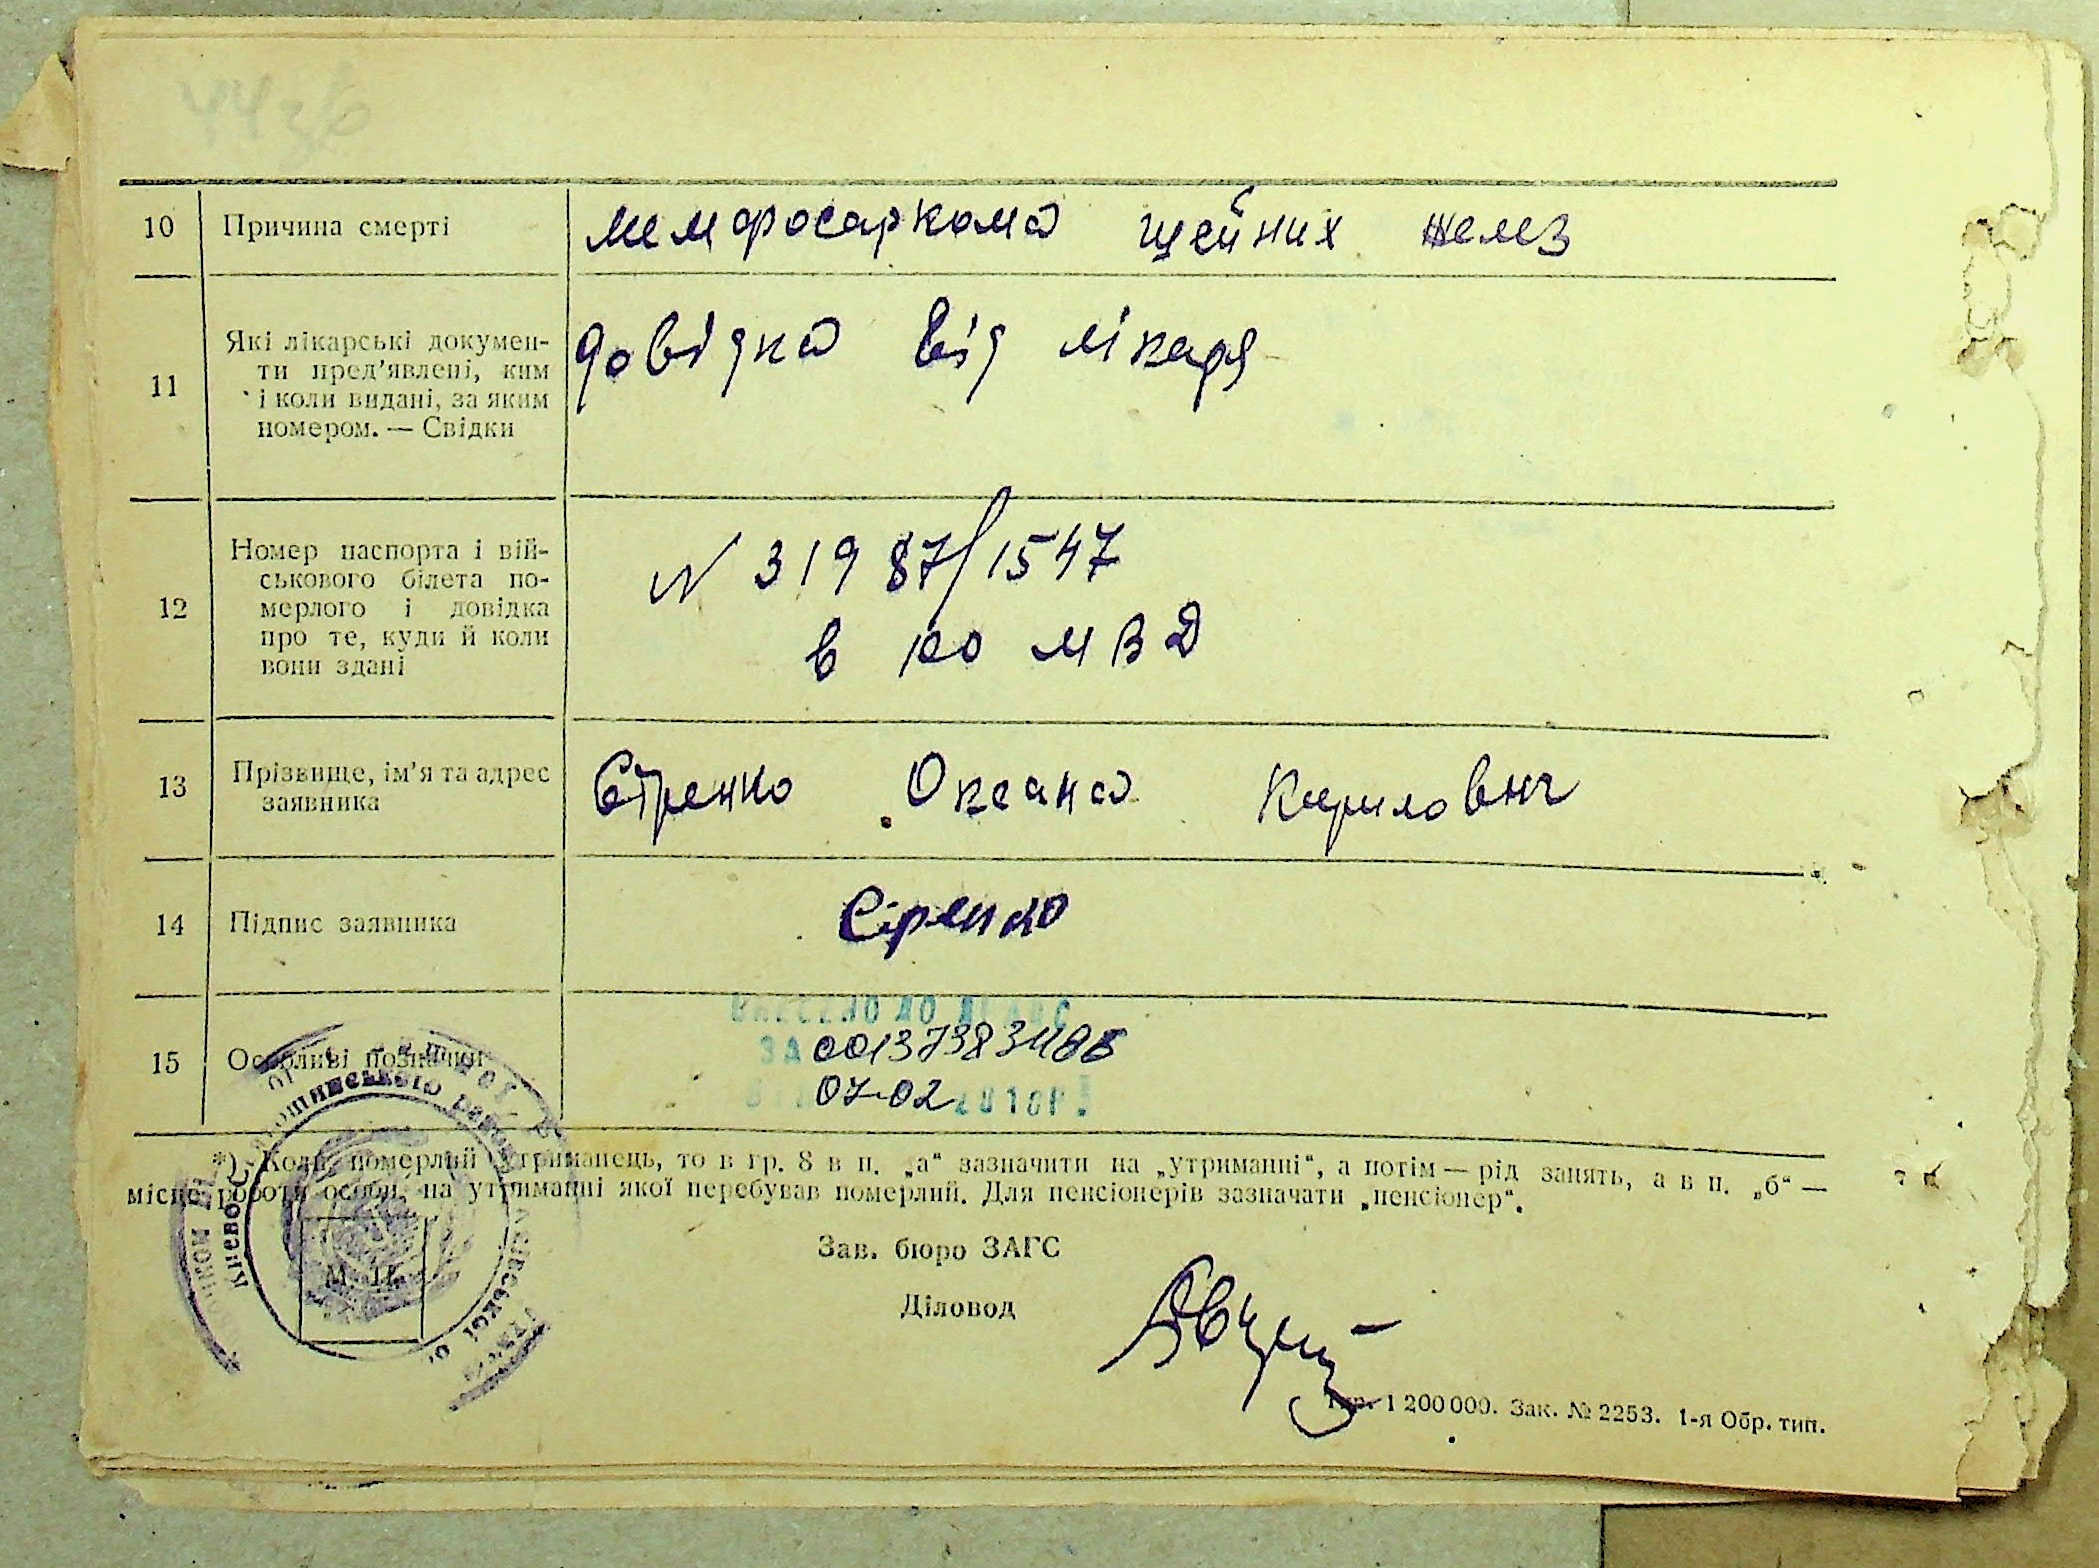 10 Причина смерті лимфосаркома шейних желез
11 Які лікарські докумен-
ти пред'явлені, ким
і коли видані, за яким
номером. — Свідки
довідка від лікаря
12 Номер паспорта і вій-
ськового білета по-
мерлого і довідка
про те, куди й коли
вони здані
N 31987/1547
в РО МВД
13 Прізвище, ім'я та адрес
заявника
Оксана Кирилович
14 Підпис заявника Сіренко
15 Особливі позначки
ВНЕСЕНО ДО ДРАЦС
ЗА
07-02 2018р.
*) Коли померлий утриманець, то в гр. 8 в п. „а“ зазначити на „утриманні“, а потім — рід занять, а в п. „б“ —
місце роботи особи, на утриманні якої перебував померлий. Для пенсіонерів зазначати „пенсіонер“.
М. П.
Зав. бюро ЗАГС
Діловод
Тир. 1 200 000. Зак. № 2253. 1-я Обр. тип.